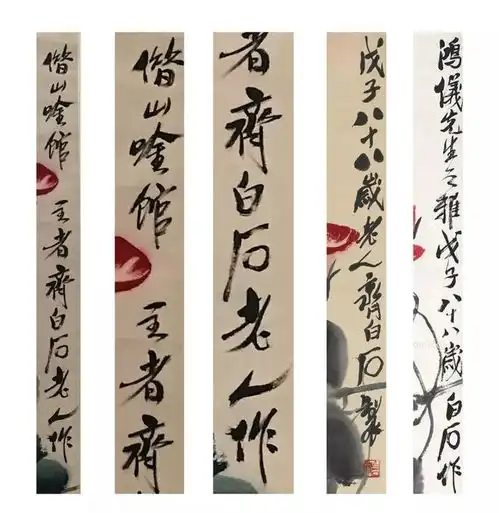 借山唫館主者齊白石老人作
借山唫館主者齊
者齊白石老人作
戊子八十八歲老人齊白石製
鴻儀先生之雅戊子八十八歲白石作